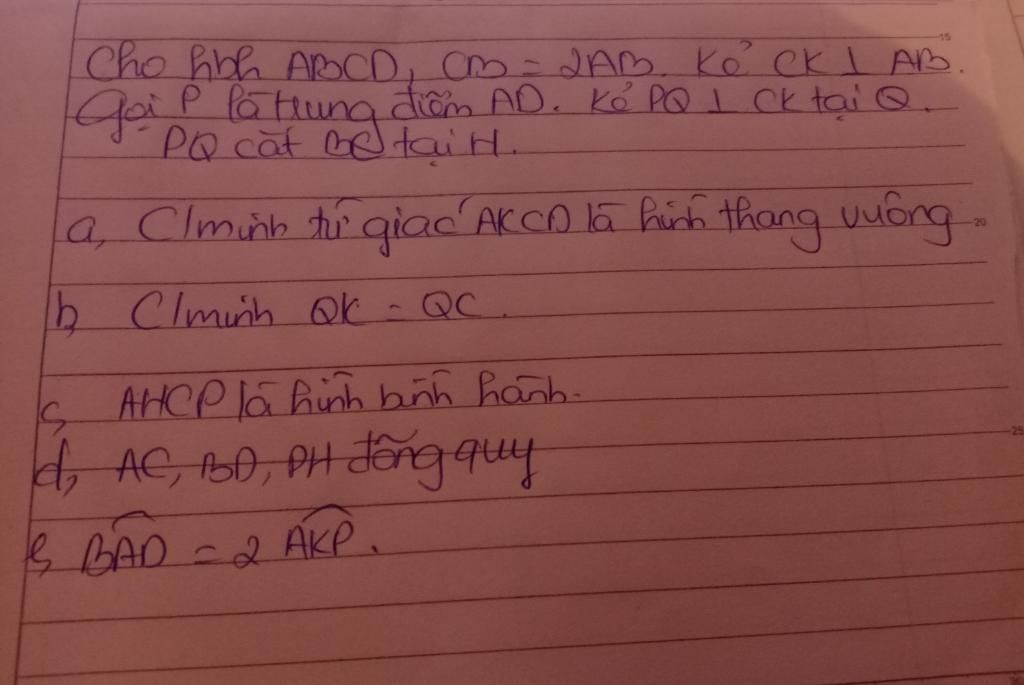 Cho hbh ABCD, CB = 2AB. Kẻ CK ⊥ AB.
Gọi P là trung điểm AD. Kẻ PQ ⊥ CK tại Q.
PQ cắt BC tại H.
a, C/minh tứ giác AKCD là hình thang vuông
b, C/minh QK = QC.
c, AHCP là hình bình hành.
d, AC, BD, PH đồng quy
e, \widehat{BAD} = 2 \widehat{AKP}.